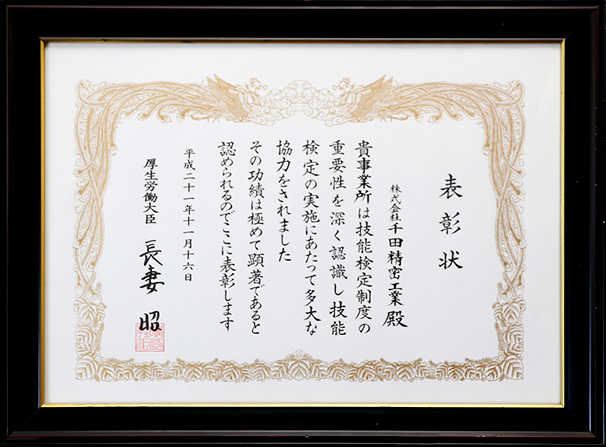 表彰状
株式会社千田精密工業 殿
貴事業所は技能検定制度の
重要性を深く認識し技能
検定の実施にあたって多大な
協力をされました
その功績は極めて顕著であると
認められるのでここに表彰します
平成二十一年十一月十六日
厚生労働大臣 長妻 昭